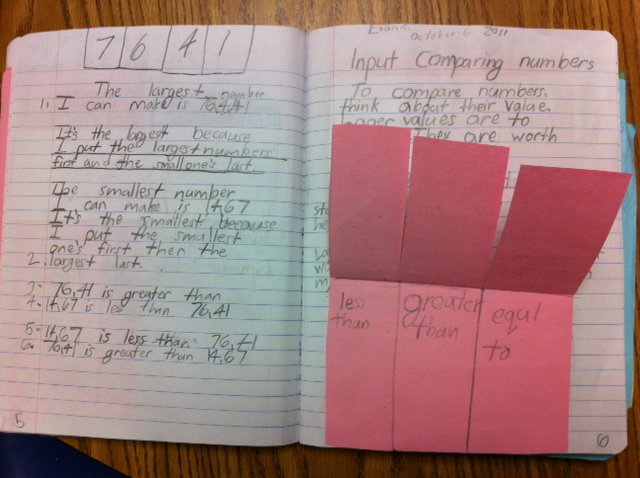 7 6 4 1
The largest number
1. I can make is 76,41
It's the largest because
I put the largest numbers
first and the small one's last.
The smallest number
I can make is 14,67
It's the smallest because
I put the smallest
one's first then the
2. largest last.
3. 76,41 is greater than
4. 14,67 is les than 76,41
5. 14,67 is less than 76,41
6. 76,41 is greater than 14,67
5
October 6 2011
Input Comparing numbers
To compare numbers,
think about their value.
values are to
They are worth
less
than
greater
than
equl
to
6